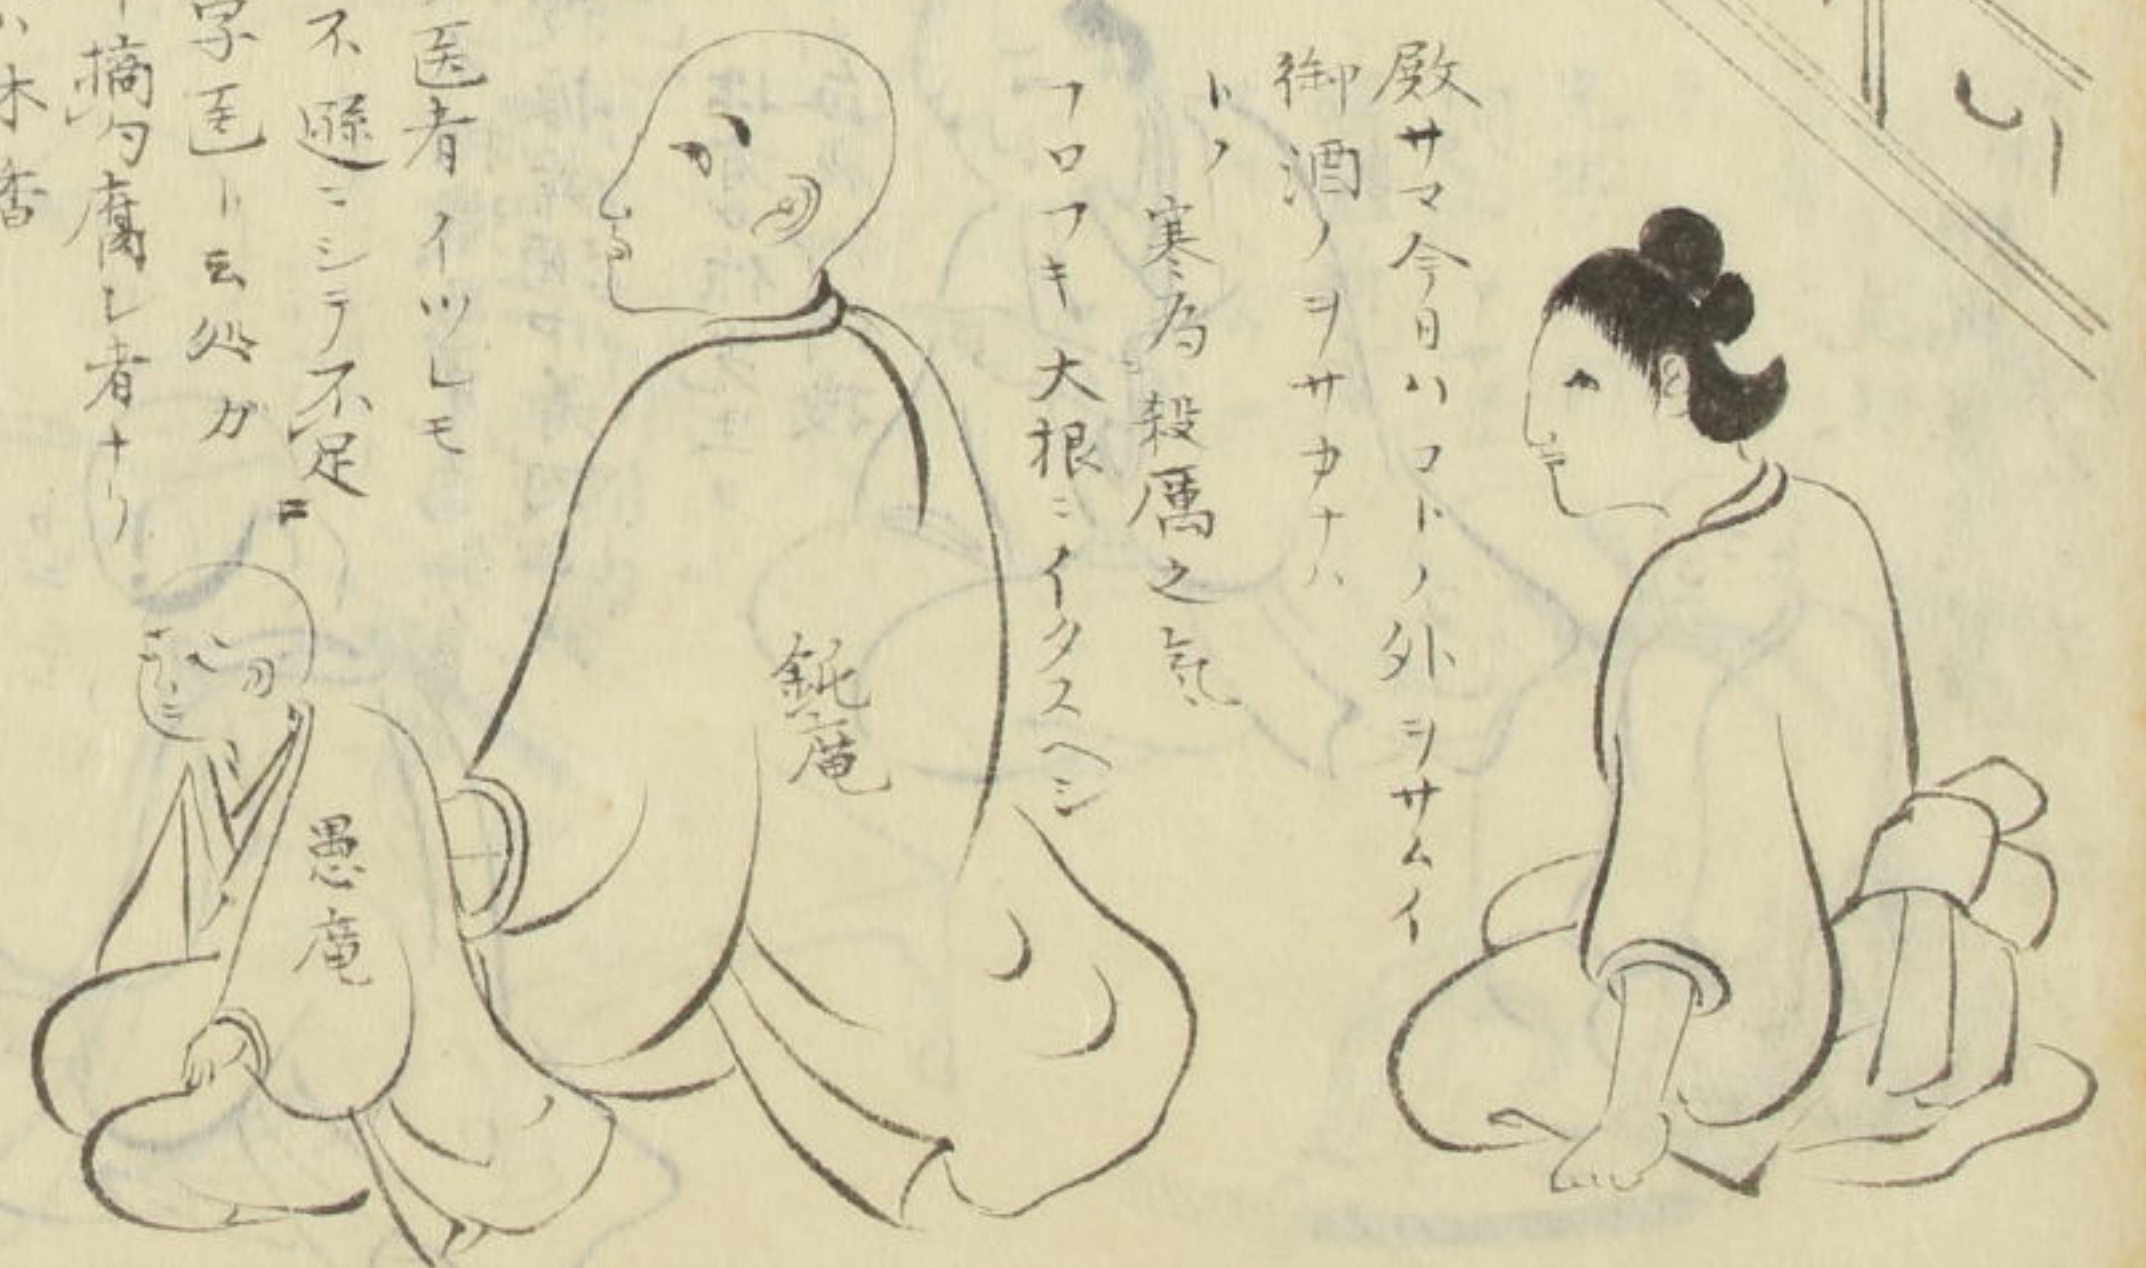 殿サマ今日ハコトノ外ヲサムイ
御酒ノヲサカナハ
トノ
寒為殺厲之気
フロフキ大根ニイタスヘシ
鈍庵
医者イツレモ
不遜ニシテ不足ニ
字医ト云処カ
摘句腐レ者ナリ
木香
愚庵